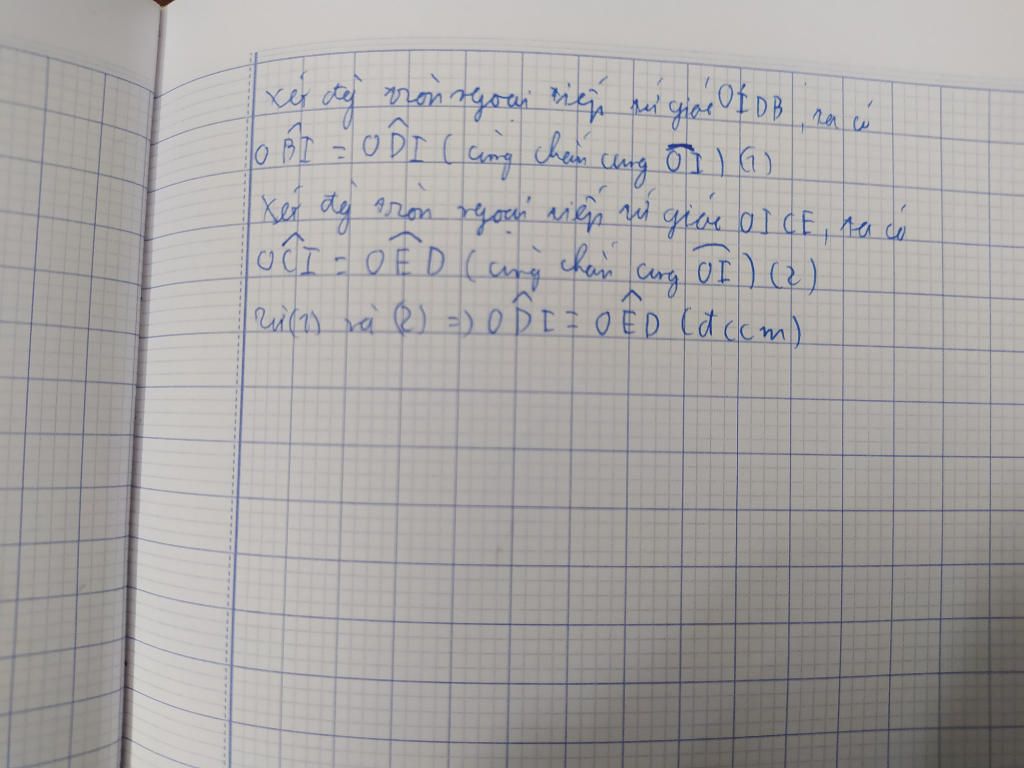 Xét đg tròn ngoại tiếp tứ giác OIDB, ta có
OBI = ODI (cùng chắn cung OI) (1)
Xét đg tròn ngoại tiếp tứ giác OICE, ta có
OCI = OED (cùng chắn cung OI) (2)
Từ (1) và (2) => ODI = OED (đccm)